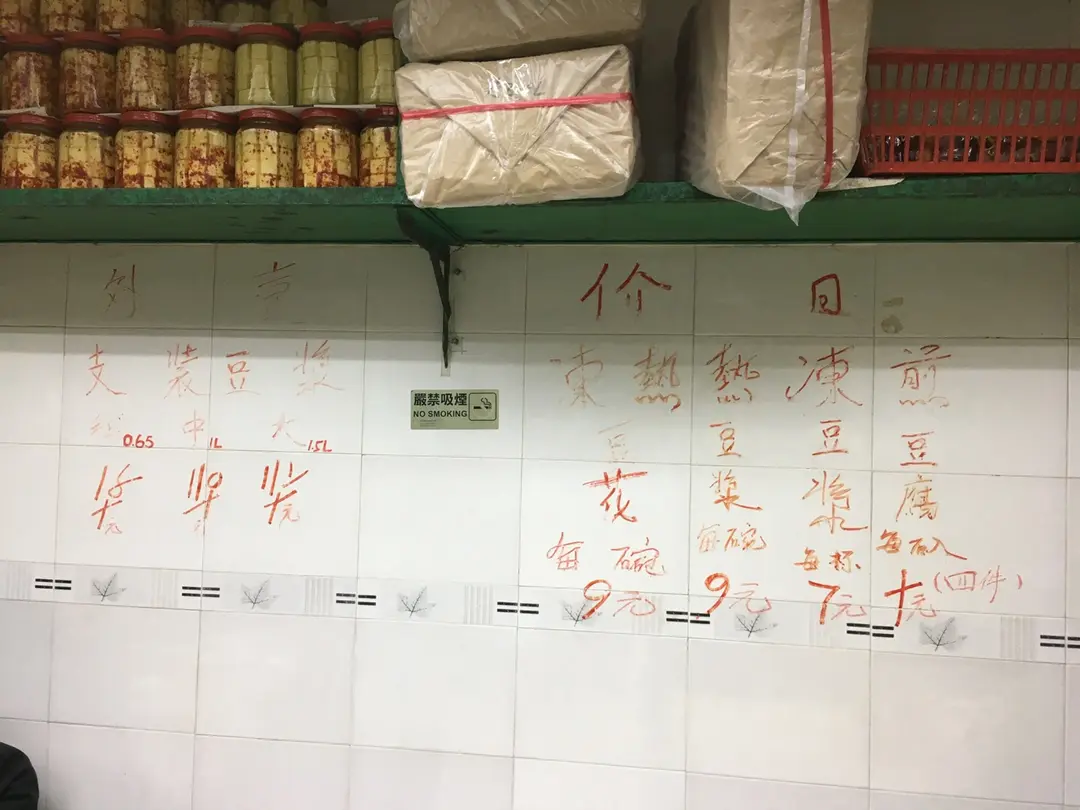 支裝豆漿
0.65
中 1L
大 1.5L
嚴禁吸煙
NO SMOKING
价目
凍熱
豆
花
每碗
9元
熱豆漿
每碗
9元
凍豆漿
每杯
7元
煎豆腐
每碗
十元(四件)